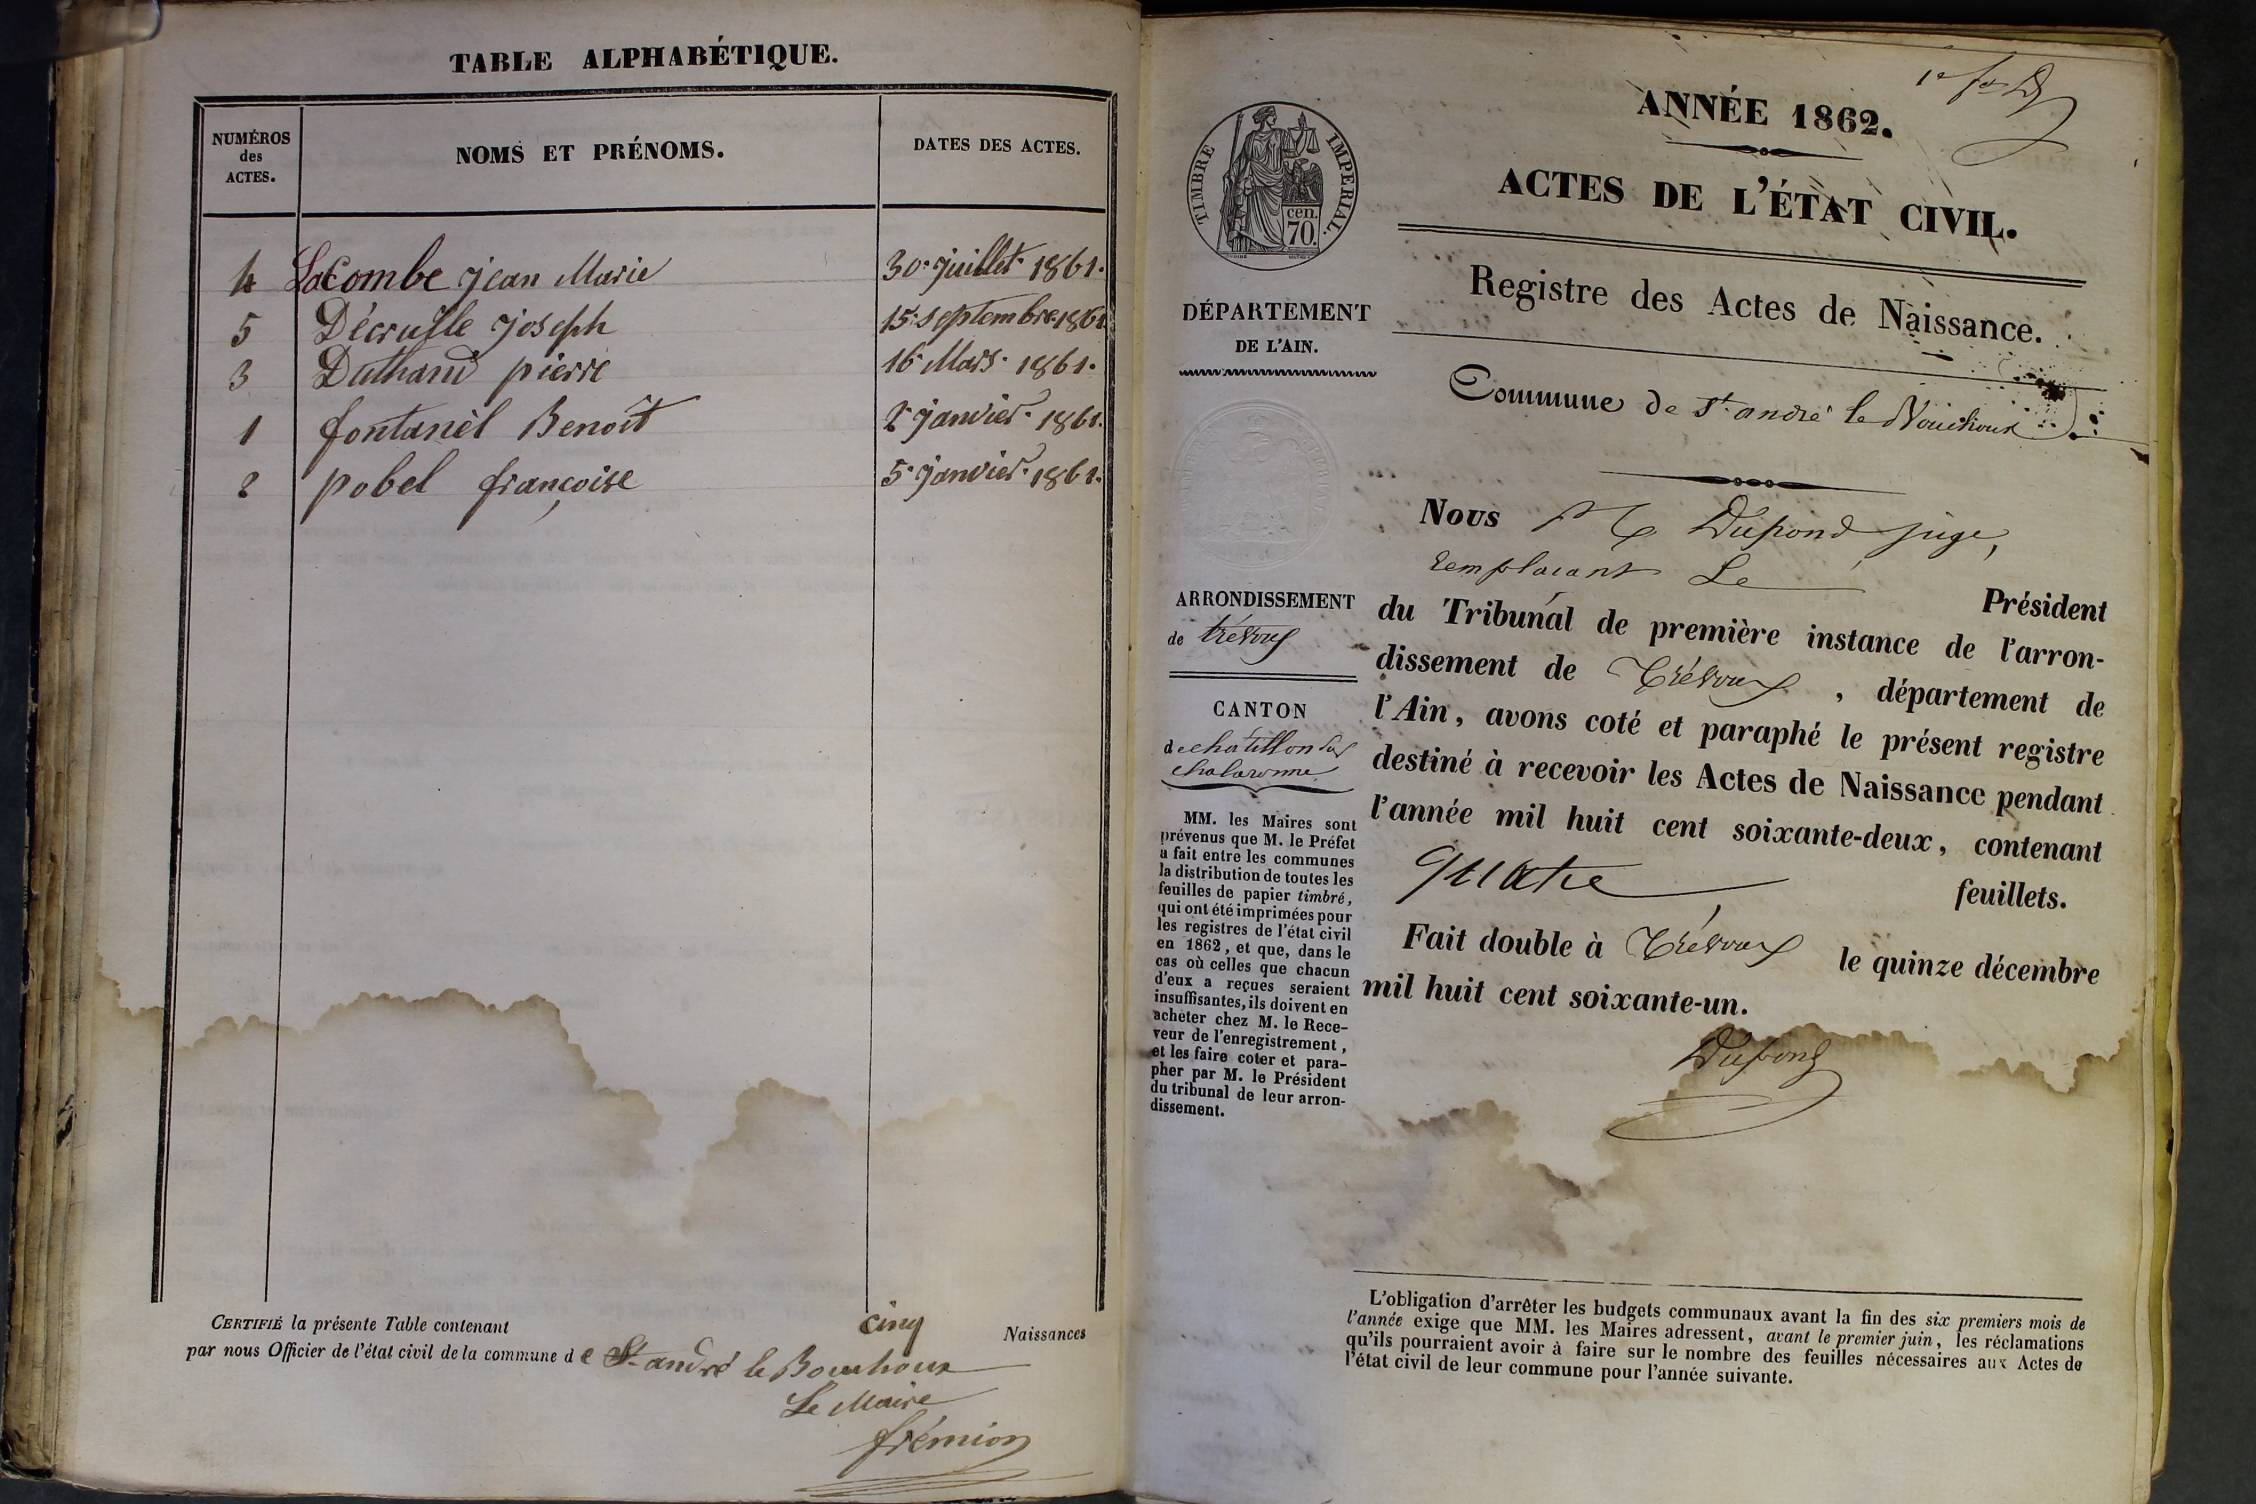 TABLE ALPHABÉTIQUE.
NUMÉROS
des
ACTES.
NOMS ET PRÉNOMS.
DATES DES ACTES.
4 Lacombe jean Marie 30. juillet. 1861.
5 Décruille joseph 15. septembre 1861
3 pierre 16. Mars. 1861.
1 fontanèl Benoît 2 janvier. 1861.
2 pobel françoise 5. janvier. 1861.
CERTIFIÉ la présente Table contenant cinq Naissances
par nous Officier de l'état civil de la commune de St andré le Bouchoux
Le Maire
frémion
ANNÉE 1862.
TIMBRE IMPERIAL.
cen.
70.
ACTES DE L'ÉTAT CIVIL.
Registre des Actes de Naissance.
DÉPARTEMENT
DE L'AIN.
Commune de St. andré le Bouchoux
Nous Dupond juge,
remplacant Le Président
du Tribunal de première instance de l'arron-
dissement de Trévoux, département de
l'Ain, avons coté et paraphé le présent registre
destiné à recevoir les Actes de Naissance pendant
l'année mil huit cent soixante-deux, contenant
quatre feuillets.
Fait double à Trévoux le quinze décembre
mil huit cent soixante-un.
Dupond
ARRONDISSEMENT
de trévoux
CANTON
de chatillon sur
chalaronne
MM. les Maires sont
prévenus que M. le Préfet
a fait entre les communes
la distribution de toutes les
feuilles de papier timbré,
qui ont été imprimées pour
les registres de l'état civil
en 1862, et que, dans le
cas où celles que chacun
d'eux a reçues seraient
insuffisantes, ils doivent en
acheter chez M. le Rece-
veur de l'enregistrement,
et les faire coter et para-
pher par M. le Président
du tribunal de leur arron-
dissement.
L'obligation d'arrêter les budgets communaux avant la fin des six premiers mois de
l'année exige que MM. les Maires adressent, avant le premier juin, les réclamations
qu'ils pourraient avoir à faire sur le nombre des feuilles nécessaires aux Actes de
l'état civil de leur commune pour l'année suivante.